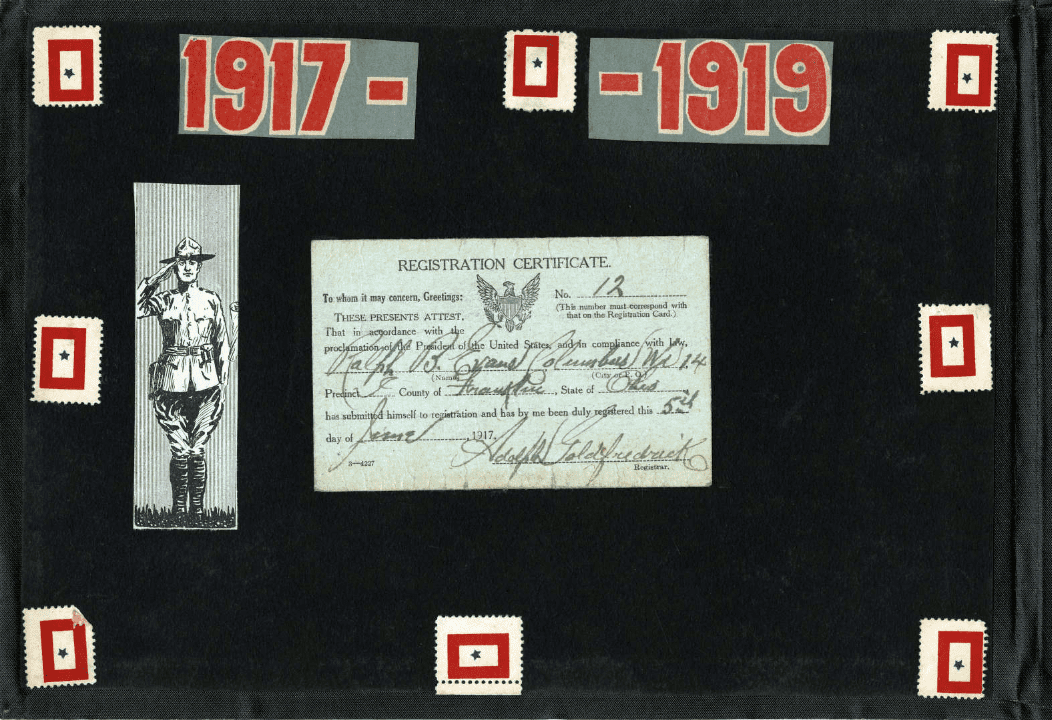 1917 -
- 1919
REGISTRATION CERTIFICATE.
To whom it may concern, Greetings:
No. 12
(This number must correspond with
that on the Registration Card.)
THESE PRESENTS ATTEST,
That in accordance with the
proclamation of the President of the United States, and in compliance with law,
Ralph B. Evans Columbus W. 14
(Name) (City or P. O.)
Precinct County of Franklin, State of Ohio
has submitted himself to registration and has by me been duly registered this 5th
day of June, 1917.
Adolph Goldfredrick
Registrar.
3—4227